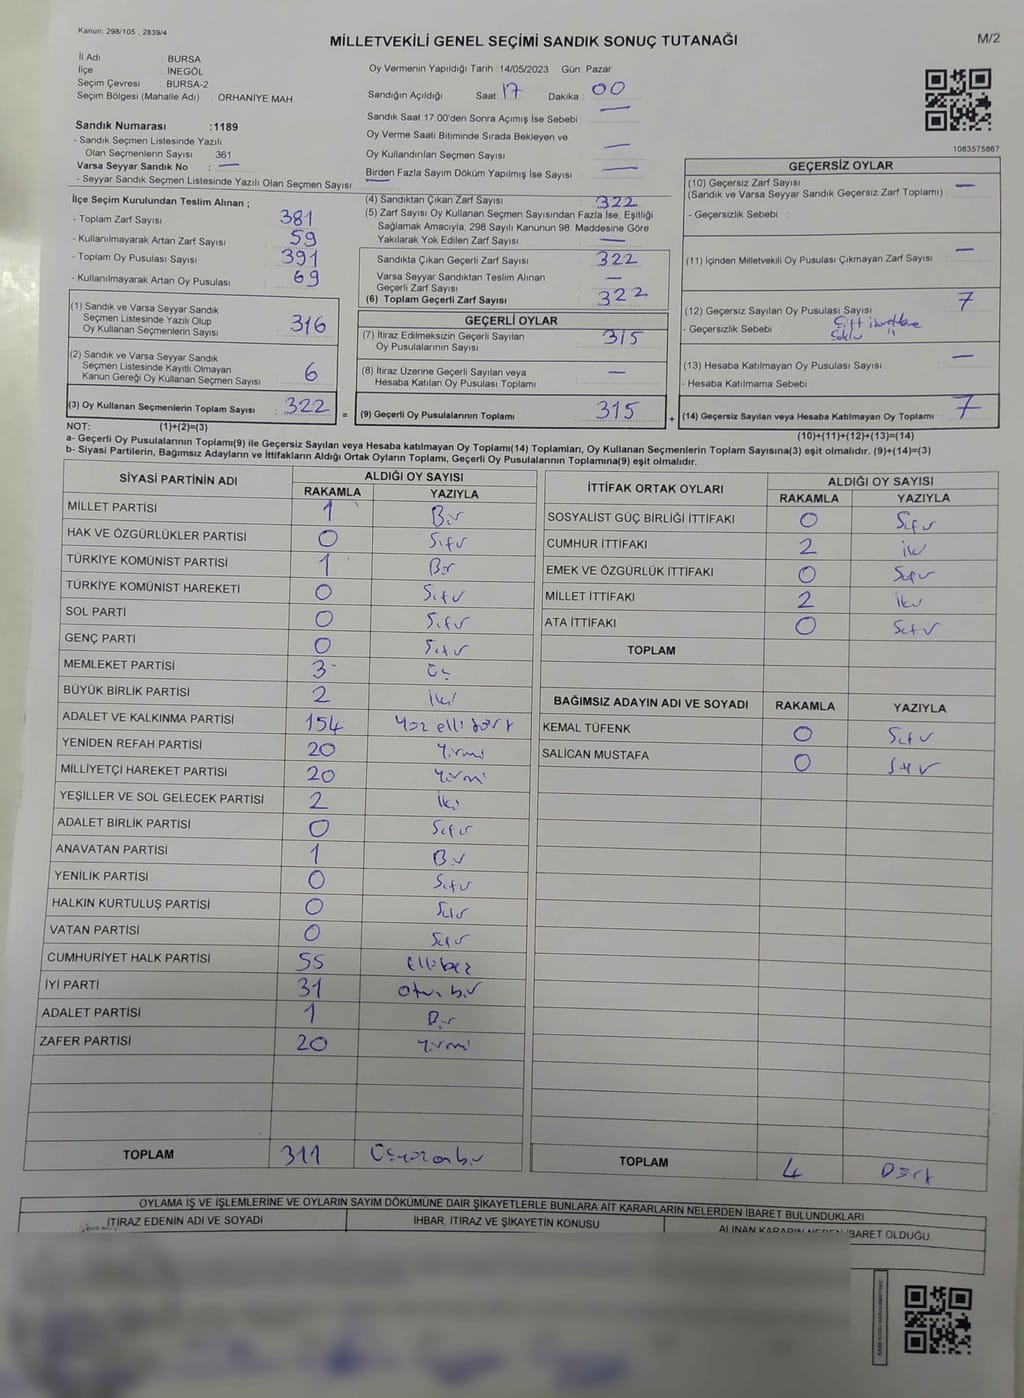 Kanun: 298/105 , 2839/4
MİLLETVEKİLİ GENEL SEÇİMİ SANDIK SONUÇ TUTANAĞI
M/2
İl Adı : BURSA
İlçe : İNEGÖL
Seçim Çevresi : BURSA-2
Seçim Bölgesi (Mahalle Adı) : ORHANİYE MAH
Sandık Numarası :1189
- Sandık Seçmen Listesinde Yazılı
Olan Seçmenlerin Sayısı 361
Varsa Seyyar Sandık No : —
- Seyyar Sandık Seçmen Listesinde Yazılı Olan Seçmen Sayısı:
Oy Vermenin Yapıldığı Tarih :14/05/2023 Gün: Pazar
Sandığın Açıldığı Saat : 17 Dakika : 00
Sandık Saat 17:00'den Sonra Açımış İse Sebebi : —
Oy Verme Saati Bitiminde Sırada Bekleyen ve
Oy Kullandırılan Seçmen Sayısı : —
Birden Fazla Sayım Döküm Yapılmış İse Sayısı : —
1083575867
İlçe Seçim Kurulundan Teslim Alınan ;
- Toplam Zarf Sayısı : 381
- Kullanılmayarak Artan Zarf Sayısı : 59
- Toplam Oy Pusulası Sayısı : 391
- Kullanılmayarak Artan Oy Pusulası : 69
(1) Sandık ve Varsa Seyyar Sandık
Seçmen Listesinde Yazılı Olup
Oy Kullanan Seçmenlerin Sayısı : 316
(2) Sandık ve Varsa Seyyar Sandık
Seçmen Listesinde Kayıtlı Olmayan
Kanun Gereği Oy Kullanan Seçmen Sayısı : 6
(3) Oy Kullanan Seçmenlerin Toplam Sayısı : 322 =
(4) Sandıktan Çıkan Zarf Sayısı : 322
(5) Zarf Sayısı Oy Kullanan Seçmen Sayısından Fazla İse, Eşitliği
Sağlamak Amacıyla, 298 Sayılı Kanunun 98. Maddesine Göre
Yakılarak Yok Edilen Zarf Sayısı : —
Sandıkta Çıkan Geçerli Zarf Sayısı : 322
Varsa Seyyar Sandıktan Teslim Alınan
Geçerli Zarf Sayısı : —
(6) Toplam Geçerli Zarf Sayısı : 322
GEÇERLİ OYLAR
(7) İtiraz Edilmeksizin Geçerli Sayılan
Oy Pusulalarının Sayısı : 315
(8) İtiraz Üzerine Geçerli Sayılan veya
Hesaba Katılan Oy Pusulası Toplamı : —
(9) Geçerli Oy Pusulalarının Toplamı : 315 +
GEÇERSİZ OYLAR
(10) Geçersiz Zarf Sayısı : —
(Sandık ve Varsa Seyyar Sandık Geçersiz Zarf Toplamı)
- Geçersizlik Sebebi :
(11) İçinden Milletvekili Oy Pusulası Çıkmayan Zarf Sayısı : —
(12) Geçersiz Sayılan Oy Pusulası Sayısı : 7
- Geçersizlik Sebebi : Çift
(13) Hesaba Katılmayan Oy Pusulası Sayısı : —
- Hesaba Katılmama Sebebi :
(14) Geçersiz Sayılan veya Hesaba Katılmayan Oy Toplamı : 7
NOT: (1)+(2)=(3)
(10)+(11)+(12)+(13)=(14)
a- Geçerli Oy Pusulalarının Toplamı(9) ile Geçersiz Sayılan veya Hesaba katılmayan Oy Toplamı(14) Toplamları, Oy Kullanan Seçmenlerin Toplam Sayısına(3) eşit olmalıdır. (9)+(14)=(3)
b- Siyasi Partilerin, Bağımsız Adayların ve İttifakların Aldığı Ortak Oyların Toplamı, Geçerli Oy Pusulalarının Toplamına(9) eşit olmalıdır.
SİYASİ PARTİNİN ADI ALDIĞI OY SAYISI
RAKAMLA YAZIYLA
MİLLET PARTİSİ 1 Bir
HAK VE ÖZGÜRLÜKLER PARTİSİ 0 Sıfır
TÜRKİYE KOMÜNİST PARTİSİ 1 Bir
TÜRKİYE KOMÜNİST HAREKETİ 0 Sıfır
SOL PARTİ 0 Sıfır
GENÇ PARTİ 0 Sıfır
MEMLEKET PARTİSİ 3 Üç
BÜYÜK BİRLİK PARTİSİ 2 İki
ADALET VE KALKINMA PARTİSİ 154 Yüz elli dört
YENİDEN REFAH PARTİSİ 20 Yirmi
MİLLİYETÇİ HAREKET PARTİSİ 20 Yirmi
YEŞİLLER VE SOL GELECEK PARTİSİ 2 İki
ADALET BİRLİK PARTİSİ 0 Sıfır
ANAVATAN PARTİSİ 1 Bir
YENİLİK PARTİSİ 0 Sıfır
HALKIN KURTULUŞ PARTİSİ 0 Sıfır
VATAN PARTİSİ 0 Sıfır
CUMHURİYET HALK PARTİSİ 55 Ellibeş
İYİ PARTİ 31 Otuz bir
ADALET PARTİSİ 1 Bir
ZAFER PARTİSİ 20 Yirmi
TOPLAM 311 Üçyüzonbir
İTTİFAK ORTAK OYLARI ALDIĞI OY SAYISI
RAKAMLA YAZIYLA
SOSYALİST GÜÇ BİRLİĞİ İTTİFAKI 0 Sıfır
CUMHUR İTTİFAKI 2 İki
EMEK VE ÖZGÜRLÜK İTTİFAKI 0 Sıfır
MİLLET İTTİFAKI 2 İki
ATA İTTİFAKI 0 Sıfır
TOPLAM
BAĞIMSIZ ADAYIN ADI VE SOYADI RAKAMLA YAZIYLA
KEMAL TÜFENK 0 Sıfır
SALİCAN MUSTAFA 0 Sıfır
TOPLAM 4 Dört
OYLAMA İŞ VE İŞLEMLERİNE VE OYLARIN SAYIM DÖKÜMÜNE DAİR ŞİKAYETLERLE BUNLARA AİT KARARLARIN NELERDEN İBARET BULUNDUKLARI
İTİRAZ EDENİN ADI VE SOYADI İHBAR, İTİRAZ VE ŞİKAYETİN KONUSU ALINAN KARARIN NEDEN İBARET OLDUĞU